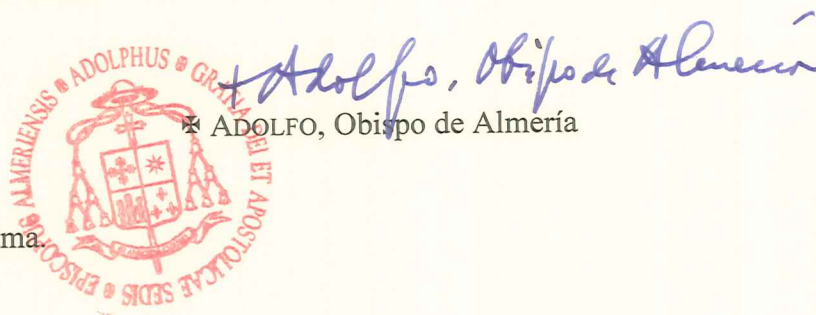 + Adolfo, Obispo de Almería
✠ ADOLFO, Obispo de Almería
ma.
ADOLPHUS GRATIA DEI ET APOSTOLICAE SEDIS EPISCOPUS ALMERIENSIS